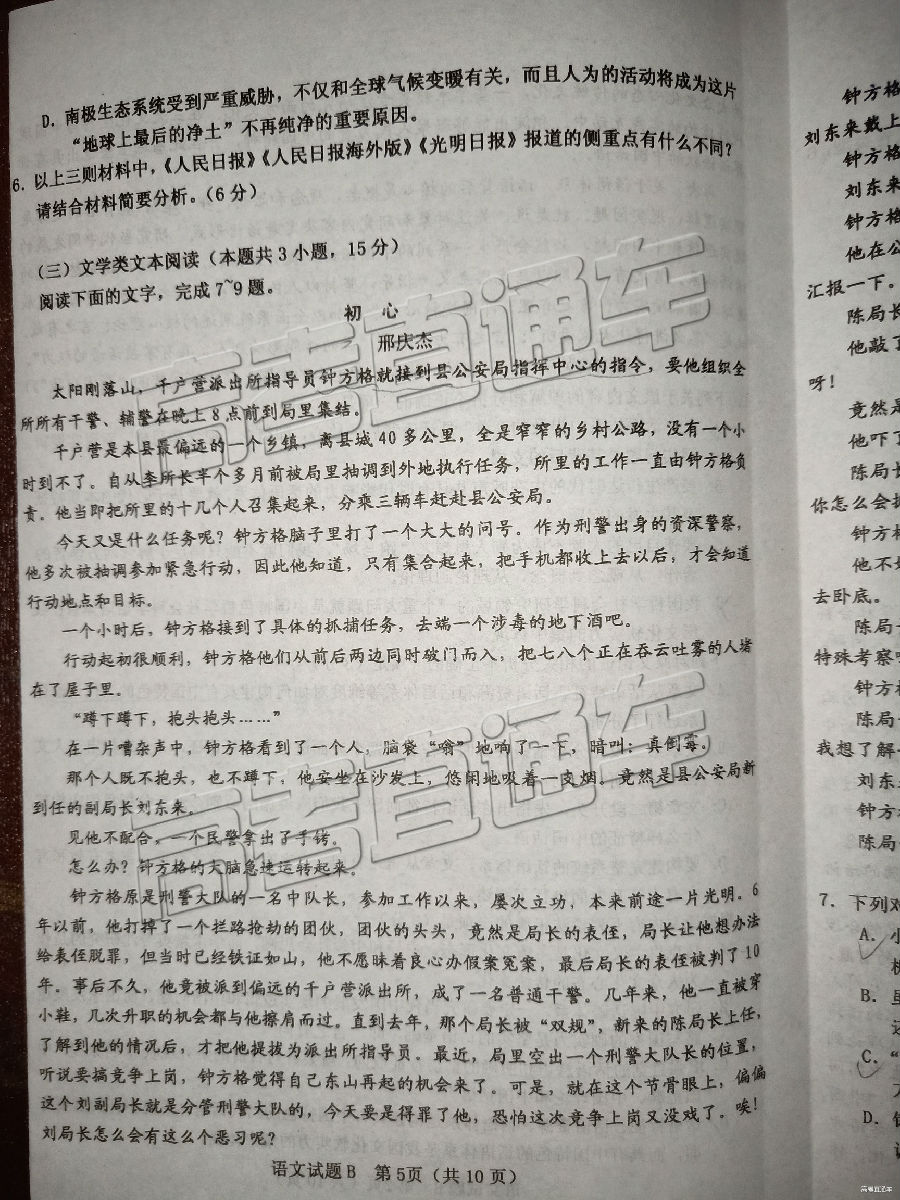 D．南极生态系统受到严重威胁，不仅和全球气候变暖有关，而且人为的活动将成为这片
“地球上最后的净土”不再纯净的重要原因。
6．以上三则材料中，《人民日报》《人民日报海外版》《光明日报》报道的侧重点有什么不同？
请结合材料简要分析。（6分）
（三）文学类文本阅读（本题共3小题，15分）
阅读下面的文字，完成7~9题。
初 心
邢庆杰
太阳刚落山，千户营派出所指导员钟方格就接到县公安局指挥中心的指令，要他组织全
所所有干警、辅警在晚上8点前到局里集结。
千户营是本县最偏远的一个乡镇，离县城40多公里，全是窄窄的乡村公路，没有一个小
时到不了。自从李所长半个多月前被局里抽调到外地执行任务，所里的工作一直由钟方格负
责。他当即把所里的十几个人召集起来，分乘三辆车赶赴县公安局。
今天又是什么任务呢？钟方格脑子里打了一个大大的问号。作为刑警出身的资深警察，
他多次被抽调参加紧急行动，因此他知道，只有集合起来，把手机都收上去以后，才会知道
行动地点和目标。
一个小时后，钟方格接到了具体的抓捕任务，去端一个涉毒的地下酒吧。
行动起初很顺利，钟方格他们从前后两边同时破门而入，把七八个正在吞云吐雾的人堵
在了屋子里。
“蹲下蹲下，抱头抱头……”
在一片嘈杂声中，钟方格看到了一个人，脑袋“嗡”地响了一下，暗叫：真倒霉。
那个人既不抱头，也不蹲下，他安坐在沙发上，悠闲地吸着一支烟，竟然是县公安局新
到任的副局长刘东来。
见他不配合，一个民警拿出了手铐。
怎么办？钟方格的大脑急速运转起来。
钟方格原是刑警大队的一名中队长，参加工作以来，屡次立功，本来前途一片光明。6
年以前，他打掉了一个拦路抢劫的团伙，团伙的头头，竟然是局长的表侄，局长让他想办法
给表侄脱罪，但当时已经铁证如山，他不愿昧着良心办假案冤案，最后局长的表侄被判了10
年。事后不久，他竟被派到偏远的千户营派出所，成了一名普通干警。几年来，他一直被穿
小鞋，几次升职的机会都与他擦肩而过。直到去年，那个局长被“双规”，新来的陈局长上任，
了解到他的情况后，才把他提拔为派出所指导员。最近，局里空出一个刑警大队长的位置，
听说要搞竞争上岗，钟方格觉得自己东山再起的机会来了。可是，就在这个节骨眼上，偏偏
这个刘副局长就是分管刑警大队的，今天要是得罪了他，恐怕这次竞争上岗又没戏了。唉！
刘局长怎么会有这么个恶习呢？
语文试题B 第5页（共10页）
钟方格
刘东来戴上
钟方格
刘东来
钟方格
他在公
汇报一下。
陈局长
他敲了
呀！
竟然是
他吓了
陈局长
你怎么会抓
钟方格
他不
去卧底。
陈局
特殊考察
钟方格
陈局
我想了解
刘东来
钟方
陈局
7．下列对
A．小
B．里
这
C．“
D．钟
高考直通车
高考直通车
高考直通车